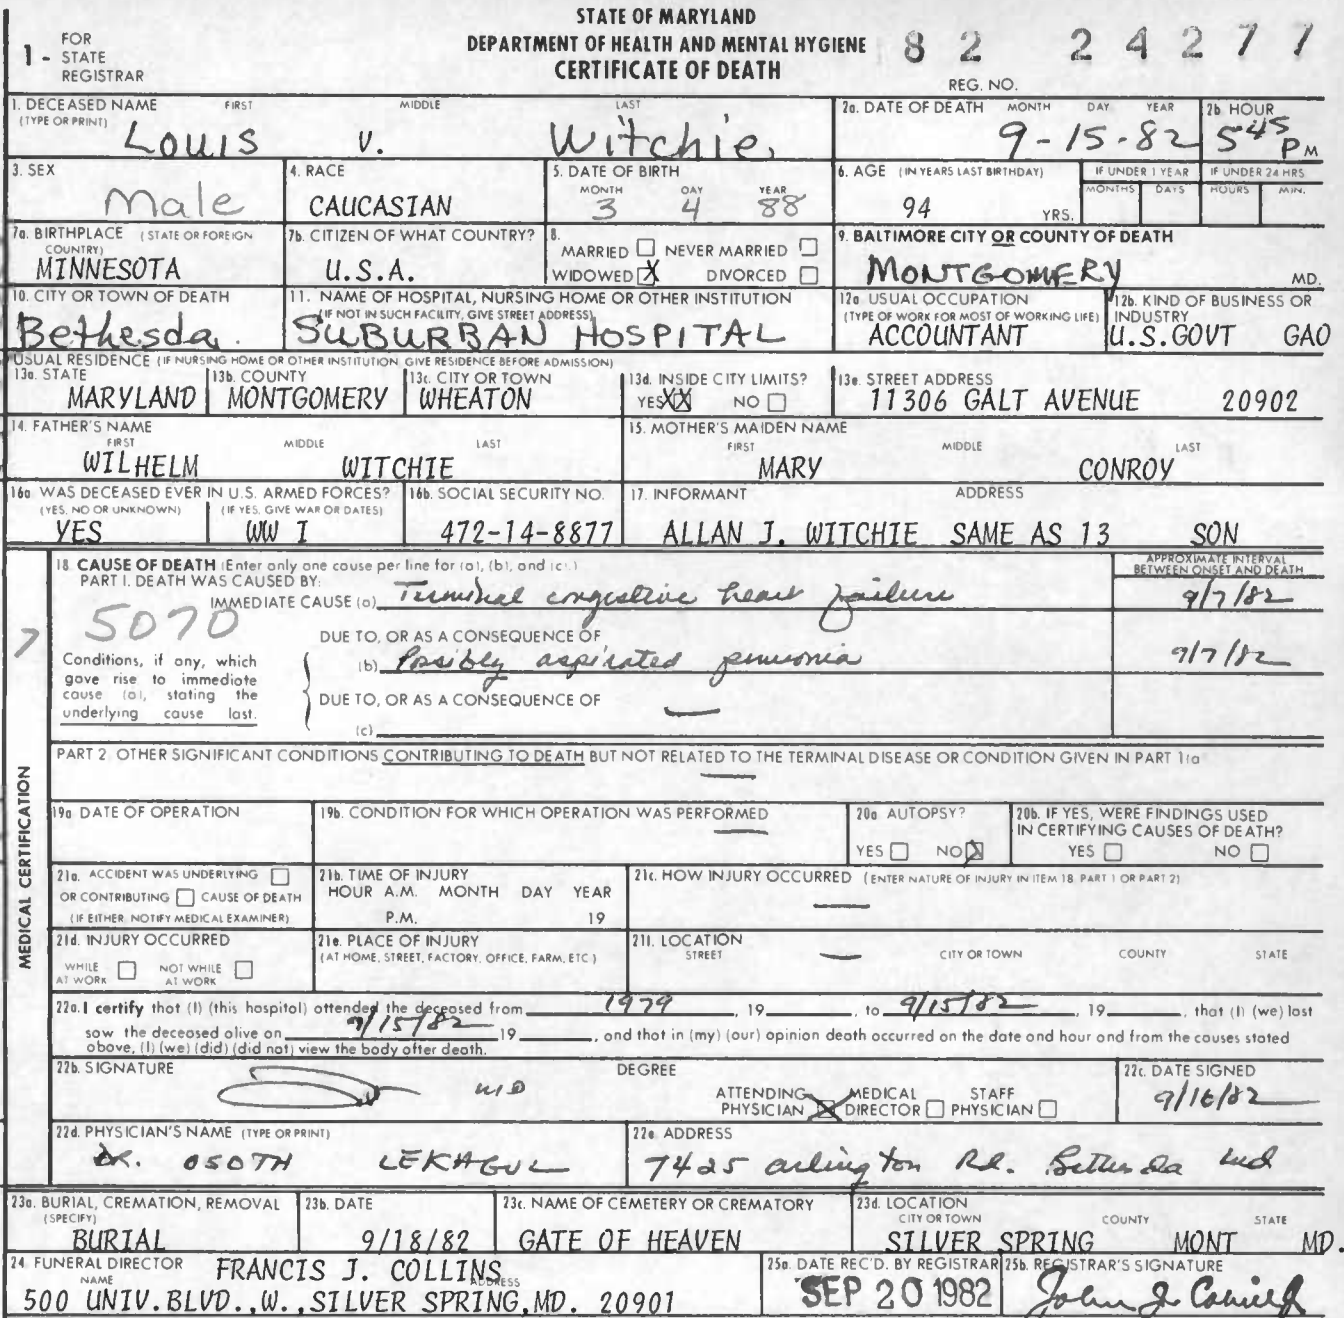 STATE OF MARYLAND
DEPARTMENT OF HEALTH AND MENTAL HYGIENE
CERTIFICATE OF DEATH
1 - FOR STATE REGISTRAR
82 24277
REG. NO.
1. DECEASED NAME (TYPE OR PRINT) FIRST MIDDLE LAST
Louis V. Witchie
2a. DATE OF DEATH MONTH DAY YEAR
9-15-82
2b. HOUR
5 45 P M
3. SEX
Male
4. RACE
CAUCASIAN
5. DATE OF BIRTH MONTH DAY YEAR
3 4 88
6. AGE (IN YEARS LAST BIRTHDAY)
94 YRS.
IF UNDER 1 YEAR MONTHS DAYS
IF UNDER 24 HRS HOURS MIN.
7a. BIRTHPLACE (STATE OR FOREIGN COUNTRY)
MINNESOTA
7b. CITIZEN OF WHAT COUNTRY?
U.S.A.
8.
MARRIED NEVER MARRIED
WIDOWED X DIVORCED
9. BALTIMORE CITY OR COUNTY OF DEATH
MONTGOMERY MD.
10. CITY OR TOWN OF DEATH
Bethesda
11. NAME OF HOSPITAL, NURSING HOME OR OTHER INSTITUTION
(IF NOT IN SUCH FACILITY, GIVE STREET ADDRESS)
SUBURBAN HOSPITAL
12a. USUAL OCCUPATION
(TYPE OF WORK FOR MOST OF WORKING LIFE)
ACCOUNTANT
12b. KIND OF BUSINESS OR INDUSTRY
U.S.GOVT GAO
USUAL RESIDENCE (IF NURSING HOME OR OTHER INSTITUTION GIVE RESIDENCE BEFORE ADMISSION)
13a. STATE
MARYLAND
13b. COUNTY
MONTGOMERY
13c. CITY OR TOWN
WHEATON
13d. INSIDE CITY LIMITS?
YES XX NO
13e. STREET ADDRESS
11306 GALT AVENUE 20902
14. FATHER'S NAME
FIRST MIDDLE LAST
WILHELM WITCHIE
15. MOTHER'S MAIDEN NAME
FIRST MIDDLE LAST
MARY CONROY
16a WAS DECEASED EVER IN U.S. ARMED FORCES?
(YES, NO OR UNKNOWN) (IF YES, GIVE WAR OR DATES)
YES WW I
16b. SOCIAL SECURITY NO.
472-14-8877
17. INFORMANT ADDRESS
ALLAN J. WITCHIE SAME AS 13 SON
18. CAUSE OF DEATH (Enter only one cause per line for (a), (b), and (c).)
APPROXIMATE INTERVAL BETWEEN ONSET AND DEATH
PART I. DEATH WAS CAUSED BY:
IMMEDIATE CAUSE (a) Terminal congestive heart failure 9/7/82
7 5070
DUE TO, OR AS A CONSEQUENCE OF
(b) Possibly aspirated pneumonia 9/7/82
DUE TO, OR AS A CONSEQUENCE OF
(c)
Conditions, if any, which
gave rise to immediate
cause (a), stating the
underlying cause last.
PART 2. OTHER SIGNIFICANT CONDITIONS CONTRIBUTING TO DEATH BUT NOT RELATED TO THE TERMINAL DISEASE OR CONDITION GIVEN IN PART 1(a
MEDICAL CERTIFICATION
19a DATE OF OPERATION
19b. CONDITION FOR WHICH OPERATION WAS PERFORMED
20a AUTOPSY?
YES NO X
20b. IF YES, WERE FINDINGS USED
IN CERTIFYING CAUSES OF DEATH?
YES NO
21a. ACCIDENT WAS UNDERLYING
OR CONTRIBUTING CAUSE OF DEATH
(IF EITHER, NOTIFY MEDICAL EXAMINER)
21b. TIME OF INJURY
HOUR A.M. MONTH DAY YEAR
P.M. 19
21c. HOW INJURY OCCURRED (ENTER NATURE OF INJURY IN ITEM 18, PART 1 OR PART 2)
21d. INJURY OCCURRED
WHILE AT WORK NOT WHILE AT WORK
21e. PLACE OF INJURY
(AT HOME, STREET, FACTORY, OFFICE, FARM, ETC.)
21f. LOCATION
STREET CITY OR TOWN COUNTY STATE
22a. I certify that (I) (this hospital) attended the deceased from 1979, 19 , to 9/15/82, 19 , that (I) (we) last
saw the deceased alive on 9/15/82 19 , and that in (my) (our) opinion death occurred on the date and hour and from the causes stated
above, (I) (we) (did) (did not) view the body after death.
22b. SIGNATURE DEGREE
MD
ATTENDING PHYSICIAN X MEDICAL DIRECTOR STAFF PHYSICIAN
22c. DATE SIGNED
9/16/82
22d. PHYSICIAN'S NAME (TYPE OR PRINT)
DR. OSOTH LEKAGUL
22e ADDRESS
7425 Arlington Rd. Bethesda Md
23a. BURIAL, CREMATION, REMOVAL (SPECIFY)
BURIAL
23b. DATE
9/18/82
23c. NAME OF CEMETERY OR CREMATORY
GATE OF HEAVEN
23d. LOCATION
CITY OR TOWN COUNTY STATE
SILVER SPRING MONT MD.
24. FUNERAL DIRECTOR
NAME ADDRESS
FRANCIS J. COLLINS
500 UNIV.BLVD.,W.,SILVER SPRING,MD. 20901
25a. DATE REC'D. BY REGISTRAR
SEP 20 1982
25b. REGISTRAR'S SIGNATURE
John J.